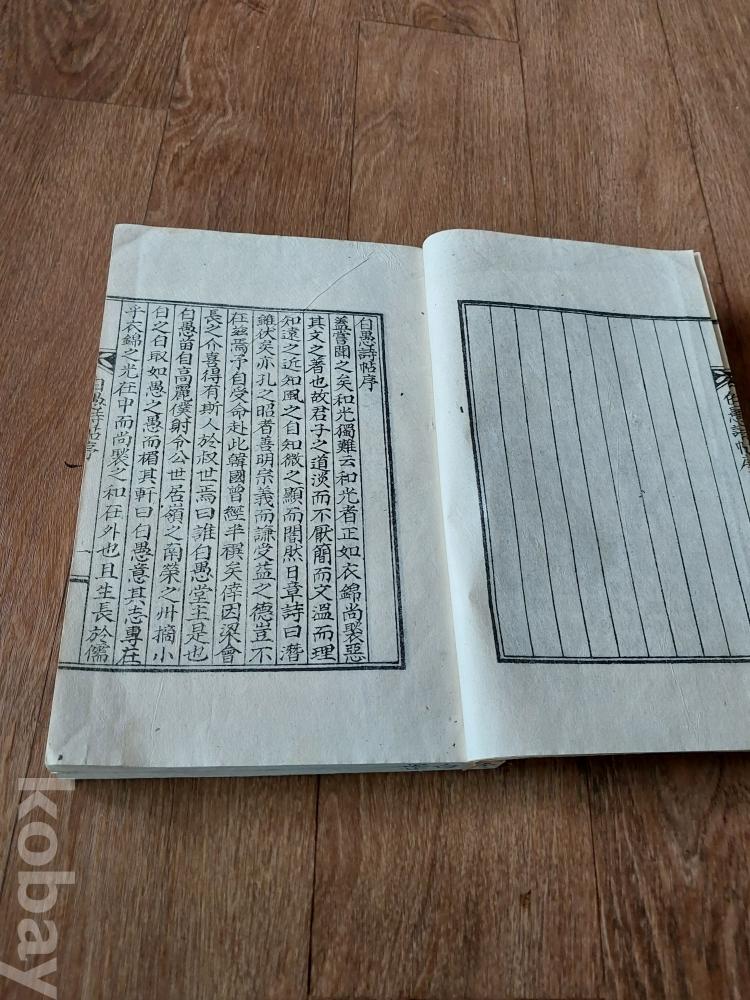 白愚詩帖序
蓋嘗聞之矣和光獨難云和光者正如衣錦尚褧惡
其文之著也故君子之道淡而不厭簡而文溫而理
知遠之近知風之自知微之顯而闇然日章詩曰潛
雖伏矣亦孔之昭者善明宗義而謙受益之德豈不
在玆焉予自受命赴此韓國曾經半禩矣倖因梁會
長之介喜得有斯人於叔世焉曰誰白愚堂主是也
白愚苗自高麗僕射令公世居嶺之南榮之州摘小
白之白取如愚之愚而楣其軒曰白愚意其志專在
乎衣錦之光在中而尚褧之和在外也且生長於儒
白愚詩帖序
一
白愚詩帖序
kobay